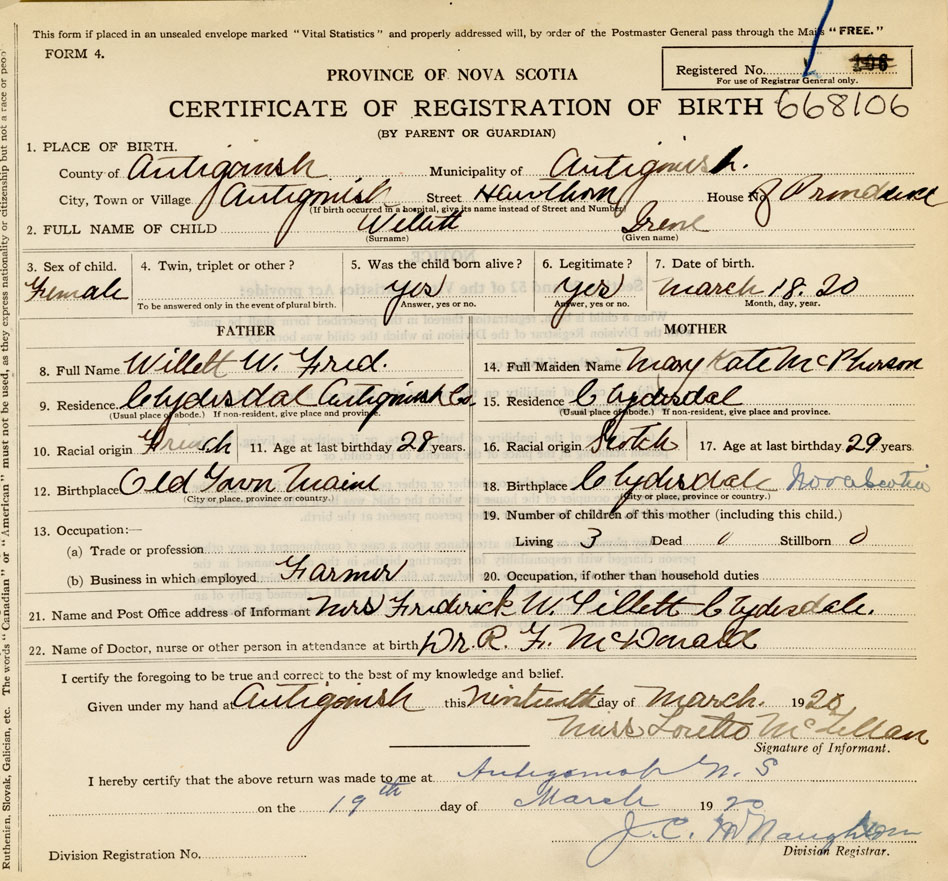 This form if placed in an unsealed envelope marked "Vital Statistics" and properly addressed will, by order of the Postmaster General pass through the Mails "FREE."
FORM 4.
Registered No.
For use of Registrar General only.
PROVINCE OF NOVA SCOTIA
CERTIFICATE OF REGISTRATION OF BIRTH 668106
(BY PARENT OR GUARDIAN)
1. PLACE OF BIRTH.
County of Antigonish Municipality of Antigonish.
City, Town or Village Antigonish Street Hawthorn House No.
(If birth occurred in a hospital, give its name instead of Street and Number)
2. FULL NAME OF CHILD Willett Irene
(Surname) (Given name)
3. Sex of child. 4. Twin, triplet or other? 5. Was the child born alive? 6. Legitimate? 7. Date of birth.
Female yes yes March 18. 20
To be answered only in the event of plural birth. Answer, yes or no. Answer, yes or no. Month, day, year.
FATHER MOTHER
8. Full Name Willett W. Fred. 14. Full Maiden Name Mary Kate McPherson
9. Residence Clydesdal Antigonish Co. 15. Residence Clydesdal
(Usual place of abode.) If non-resident, give place and province. (Usual place of abode.) If non-resident, give place and province.
10. Racial origin French 11. Age at last birthday 28 years. 16. Racial origin Scotch 17. Age at last birthday 29 years.
12. Birthplace Old Town Maine 18. Birthplace Clydesdale Nova Scotia
(City or place, province or country.) (City or place, province or country.)
13. Occupation:— 19. Number of children of this mother (including this child.)
(a) Trade or profession Living 3 Dead 0 Stillborn 0
(b) Business in which employed Farmer 20. Occupation, if other than household duties
21. Name and Post Office address of Informant Mrs Frederick W. Willett Clydesdale.
22. Name of Doctor, nurse or other person in attendance at birth Dr. R. F. McDonald
I certify the foregoing to be true and correct to the best of my knowledge and belief.
Given under my hand at Antigonish this ninteenth day of March. 1920
Miss Loretto McLellan
Signature of Informant.
I hereby certify that the above return was made to me at Antigonish N. S
on the 19th day of March 1920
J. C. McNaughton
Division Registrar.
Division Registration No.
Ruthenian, Slovak, Galician, etc. The words "Canadian" or "American" must not be used, as they express nationality or citizenship but not a race or